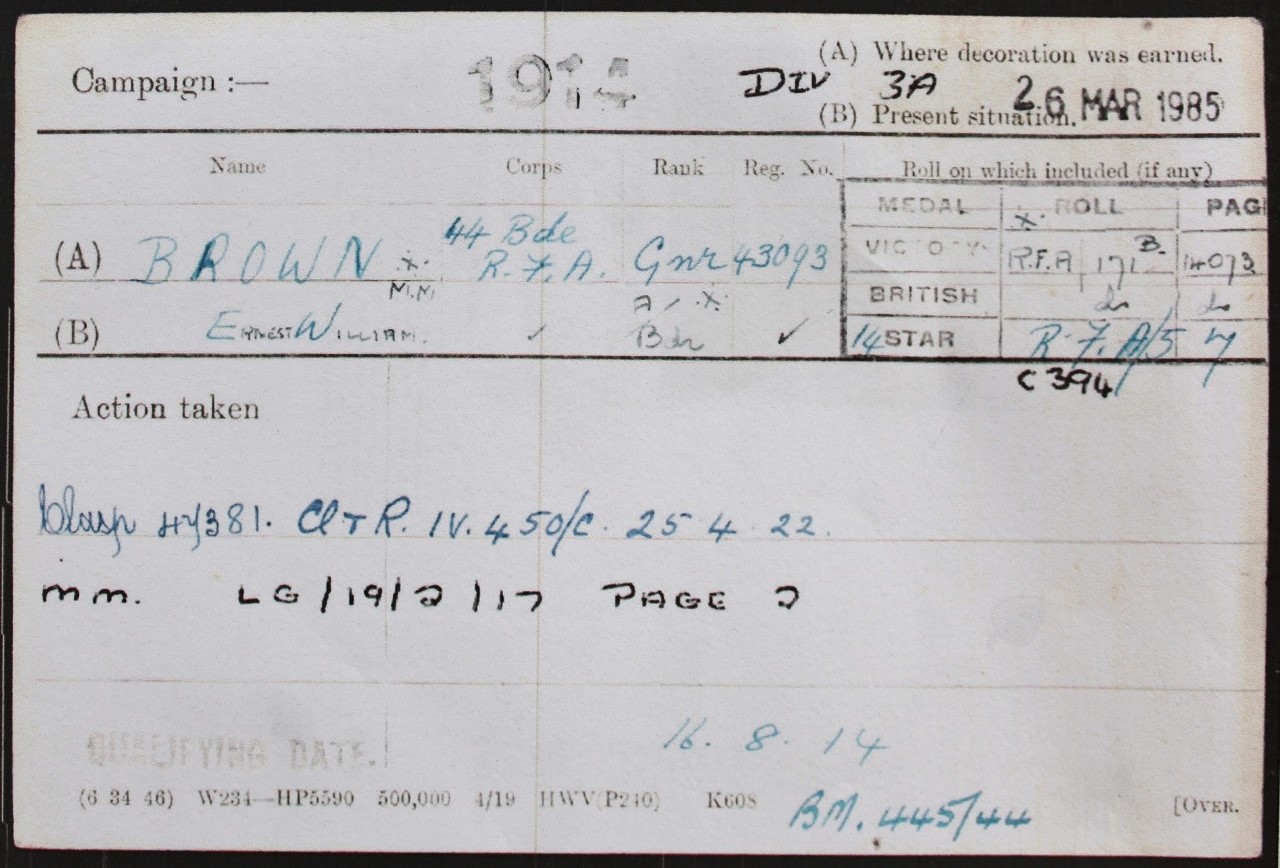 Campaign :— 1914 (A) Where decoration was earned.
DIV 3A 26 MAR 1985
(B) Present situation.
Name Corps Rank Reg. No. Roll on which included (if any)
MEDAL ROLL PAGE
(A) BROWN x 44 Bde R.F.A. Gnr 43093
M.M.
VICTORY R.F.A 171 B. 14073
BRITISH do do
A/ x
(B) ERNEST WILLIAM. ✓ Bdr ✓
14 STAR R.F.A/5 7
C 394
Action taken
Clasp 4y381. Cl & R. IV. 450/C. 25 4 22.
mm. LG/19/2/17 PAGE 2
QUALIFYING DATE. 16. 8. 14
(6 34 46) W234—HP5590 500,000 4/19 HWV(P240) K608
BM. 445/44
[OVER.